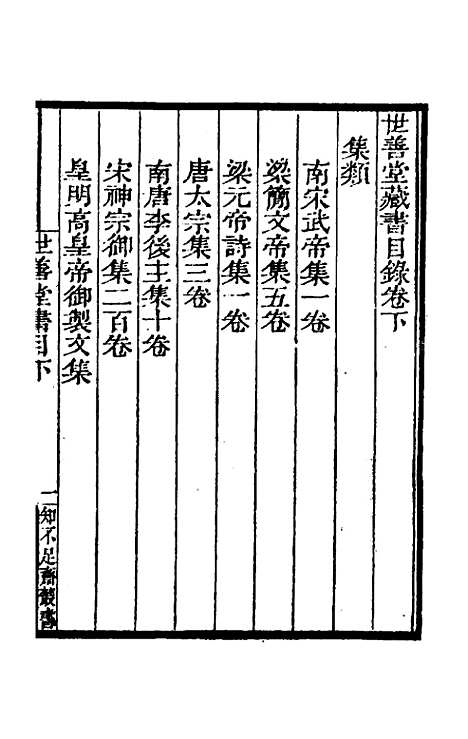 世善堂藏書目錄卷下
集類
南宋武帝集一卷
梁簡文帝集五卷
梁元帝詩集一卷
唐太宗集三卷
南唐李後主集十卷
宋神宗御集二百卷
皇明高皇帝御製文集
世善堂書目下
一
知不足齋叢書